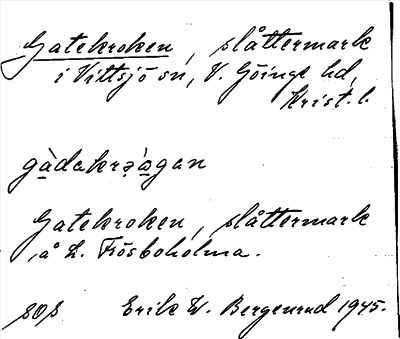 Gatekroken, slåttermark
i Vittsjö sn, V. Göinge hd,
Krist. l.
gàdakrə̀ǫgan
Gatekroken, slåttermark
å L. Frösboholma.
SOS Erik W. Bergenrud 1945.